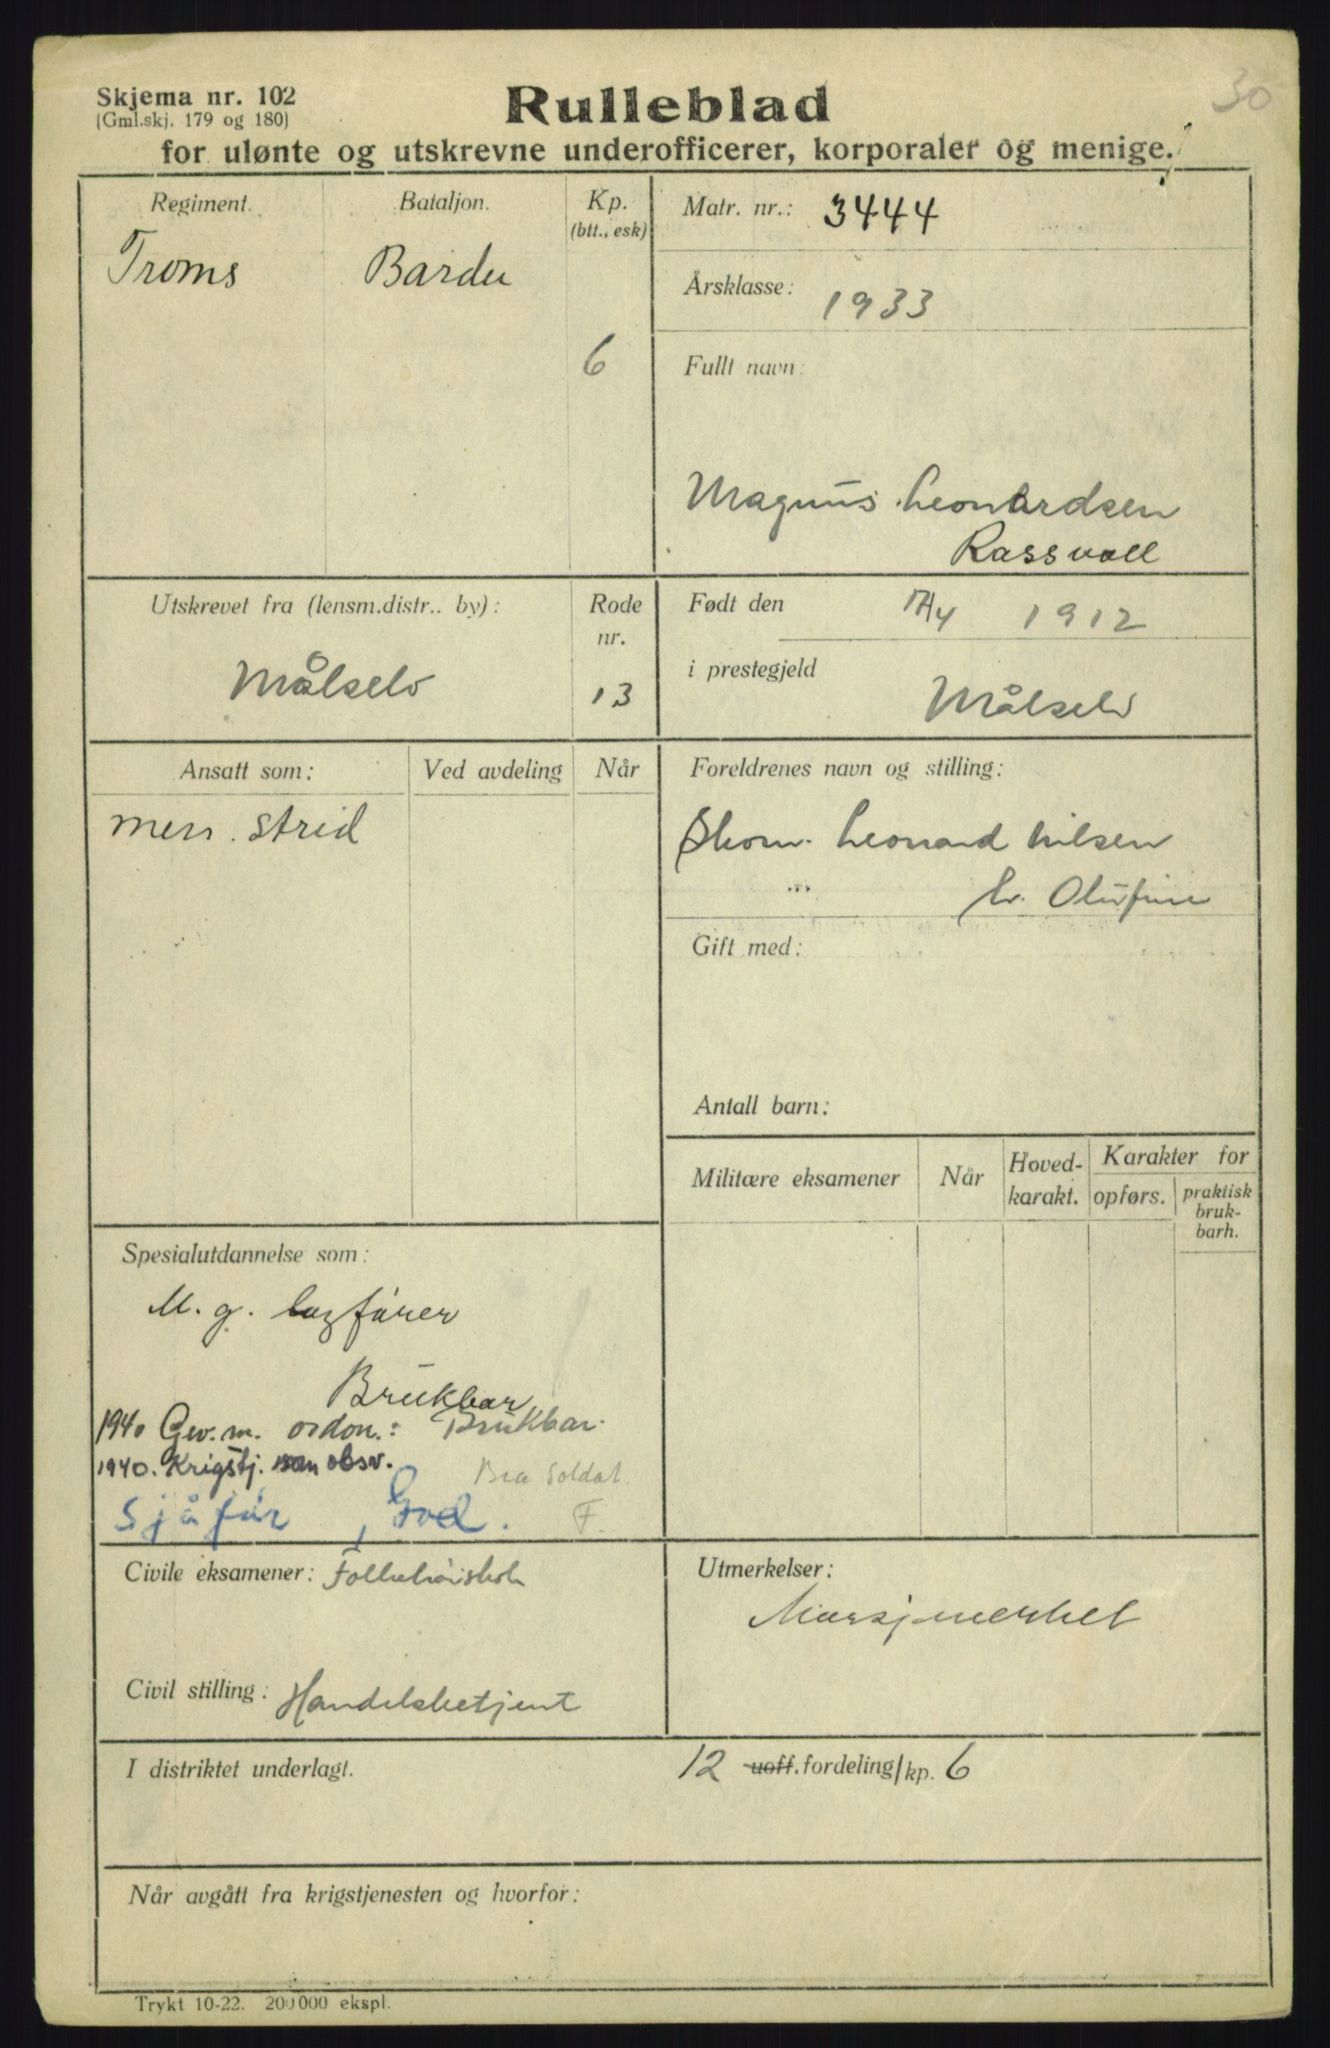 30
Skjema nr. 102
(Gml.skj. 179 og 180)
Rulleblad
for ulønte og utskrevne underofficerer, korporaler og menige.
Regiment.
Bataljon.
Kp.
(btt., esk)
Troms
Bardu
6
Matr. nr.: 3444
Årsklasse: 1933
Fullt navn:
Magnus Leonardsen
Rassvoll
Utskrevet fra (lensm.distr.. by):
Målselv
Rode
nr.
13
Født den 17/4 1912
i prestegjeld
Målselv
Ansatt som:
Ved avdeling
Når
men. strid
Foreldrenes navn og stilling:
Skom. Leonard Nilsen
" Olufine
Gift med:
Antall barn:
Militære eksamener
Når
Hoved-
karakt.
Karakter for
opførs.
praktisk
bruk-
barh.
Spesialutdannelse som:
M. g. lagfører
Brukbar
1940 Gev. m. ordon.: Brukbar.
1940. Krigstj. som obsv. Bra soldat.
Sjåfør, God. F.
Civile eksamener: Folkehøiskole
Civil stilling: Handelsbetjent
Utmerkelser:
Marsjmerket
I distriktet underlagt.
12 uoff. fordeling/kp. 6
Når avgått fra krigstjenesten og hvorfor:
Trykt 10-22. 200000 ekspl.